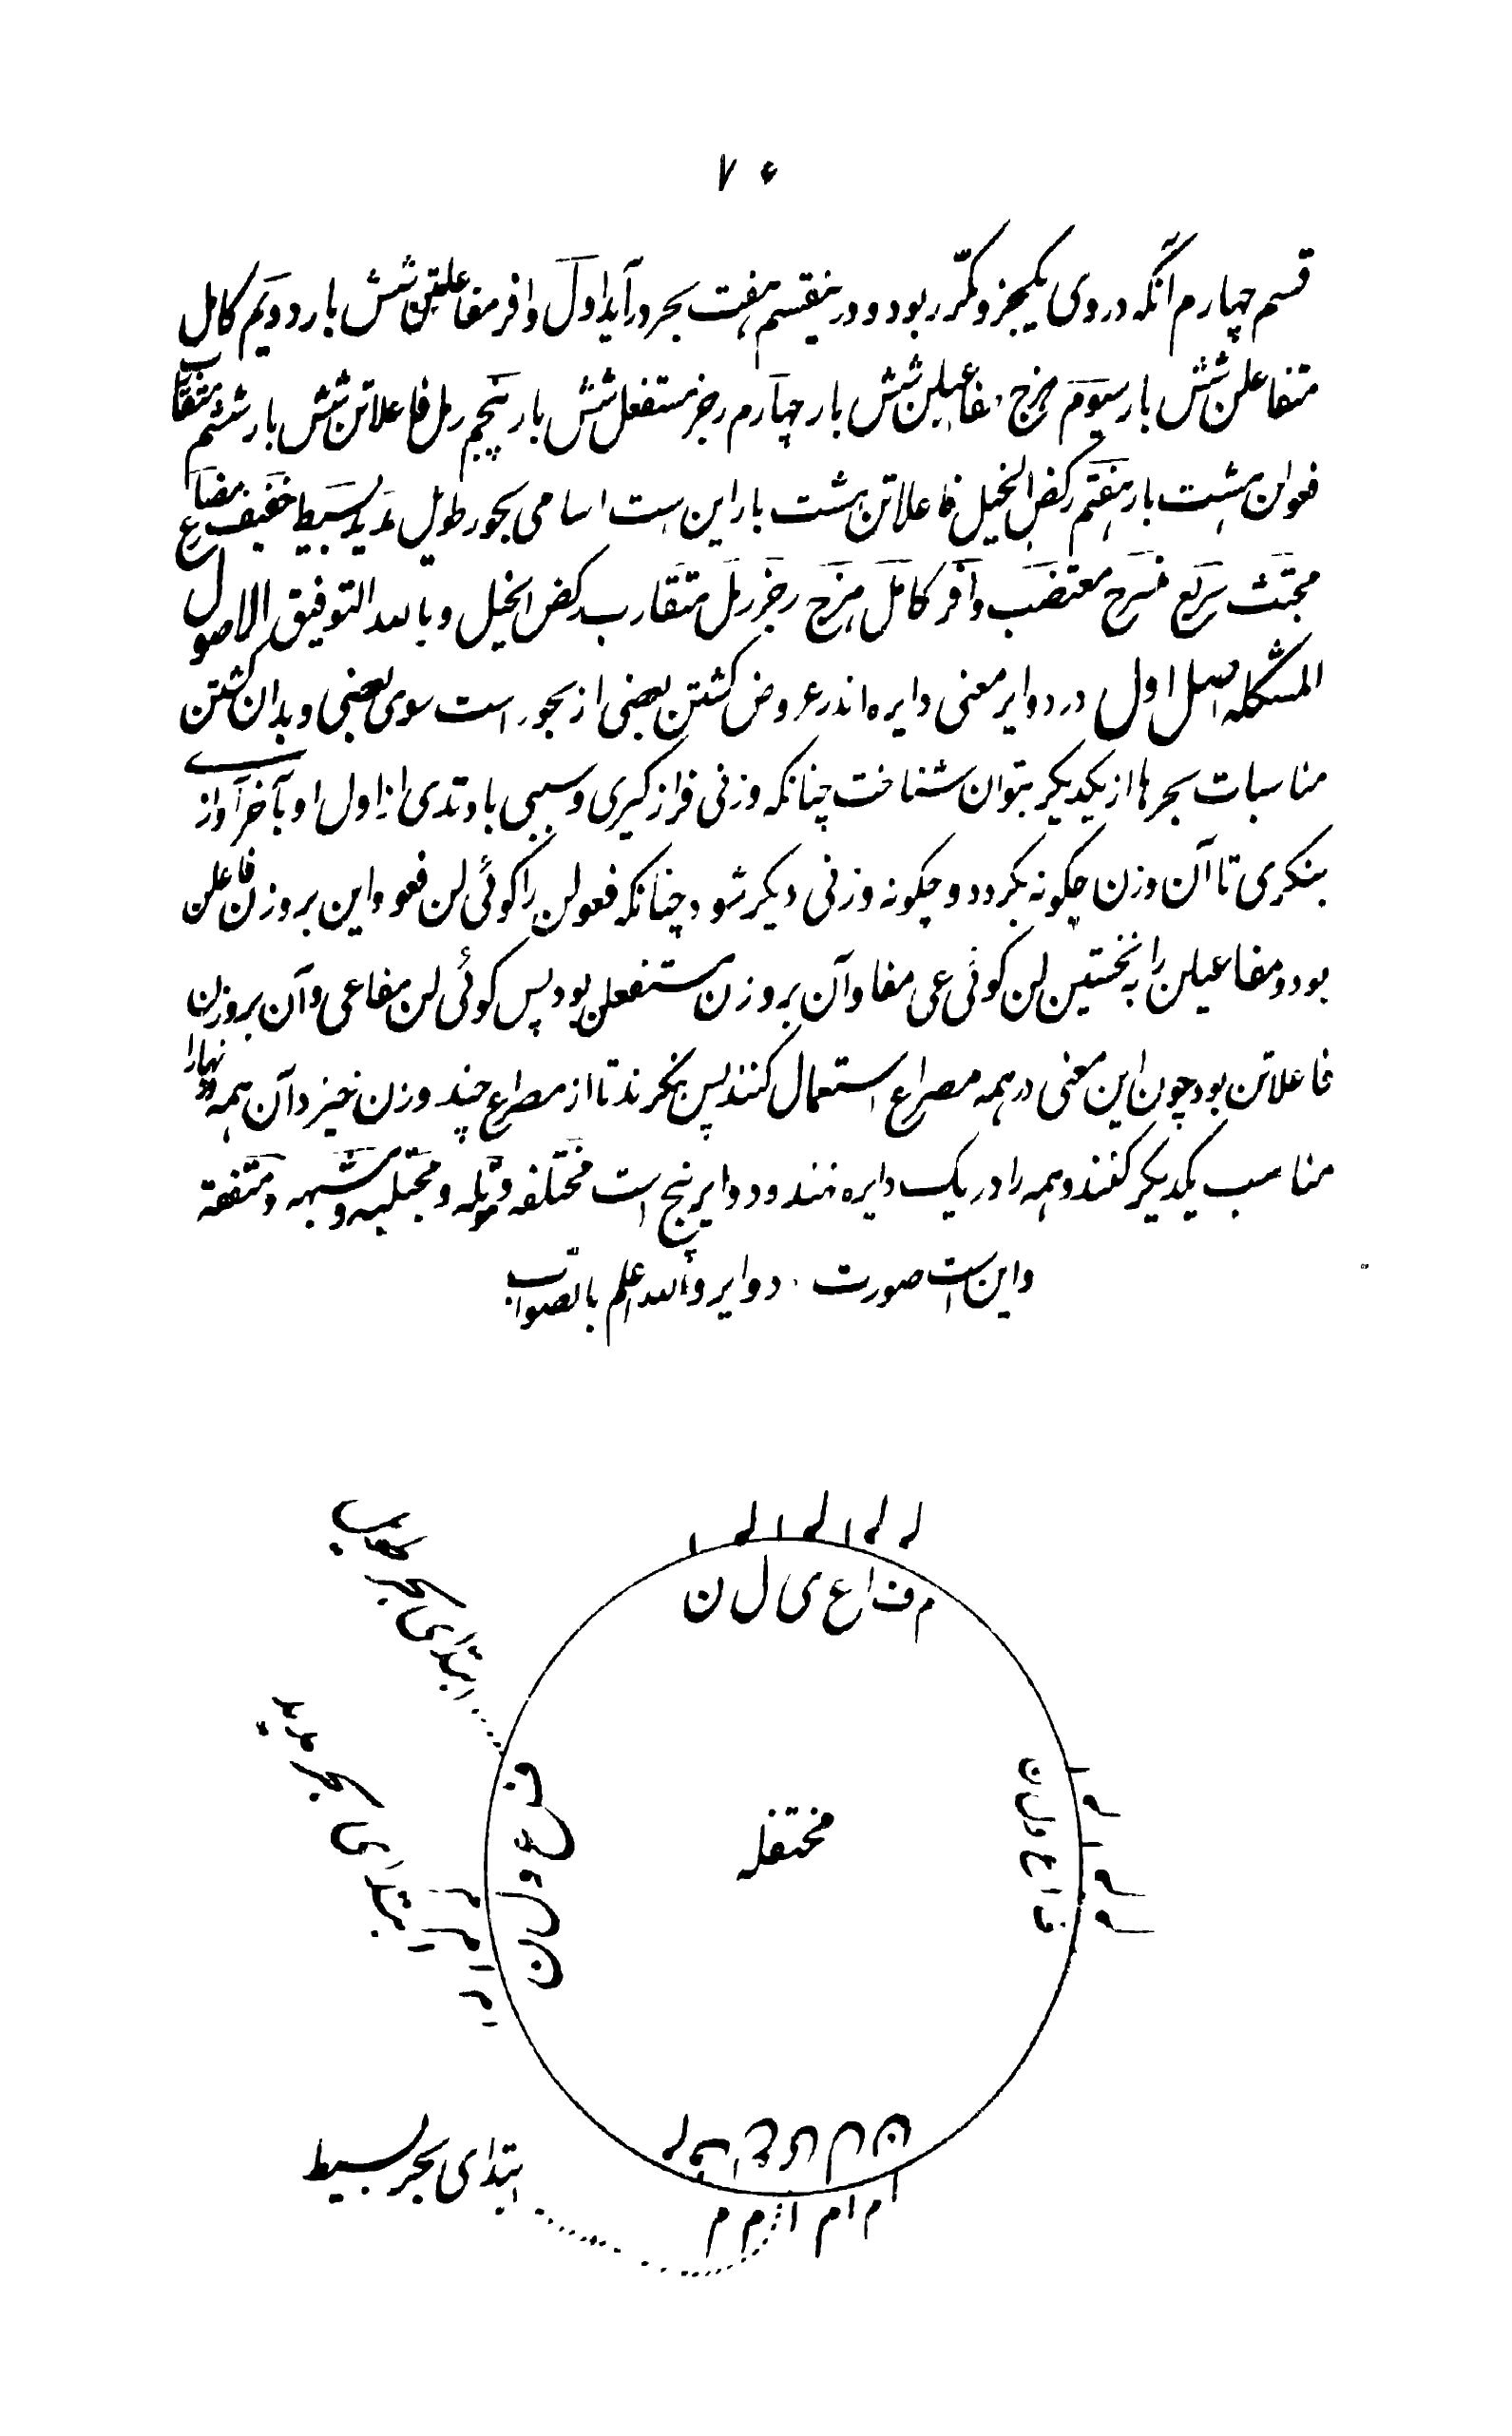 ۷۰
قسم چهارم آنکه در وی یکجزو مکرّر بود و درینقسم هفت بحر در آید اول وافر مفاعلتن شش بار دویم کامل
متفاعلن شش بار سیوم هزج مفاعیلن شش بار چهارم رجز مستفعلن شش بار پنجم رمل فاعلاتن شش بار ششم متقارب
فعولن هشت بار هفتم رکض الخیل فاعلاتن هشت بار این ست اسامی بحور طویل مدید بسیط خفیف مضارع
مجتث سریع منسرح مقتضب وافر کامل هزج رجز رمل متقارب رکض الخیل و بالله التوفیق الاصول
المشکله اصل اول در دوایر معنی دایره اندر عروض کشتن بعضی از بحور است سوی بعضی و بدان کشتن
مناسبات بحرها از یکدیکر بتوان شناخت چنانکه وزنی فراز کیری و سببی یا وتدی از اول او بآخر آواز
بنکری تا آن وزن چکونه بکردد و چکونه وزنی دیکر شود چنانکه فعولن را کوئی لن فعو و این بر وزن فاعلن
بود و مفاعیلن را نخستین کوئی عی لن مفا و آن بر وزن مستفعلن بود پس کوئی لن مفاعی و آن بر وزن
فاعلاتن بود چون این معنی در همه مصراع استعمال کنند پس بنکرند تا از مصراع چند وزن خیزد آن همه
مناسب یکدیکر کنند و همه را در یک دایره نهند و دوایر پنج است مختلفه و مؤتلفه و مجتلبه و مشتبهه و متفقه
و این است صورت دوایر و الله اعلم بالصواب
م ف ا ع ی ل ن
ف ع و ل ن
ف ا ع ی ل ن
ابتدای بحر مدید
ابتدای بحر بسیط